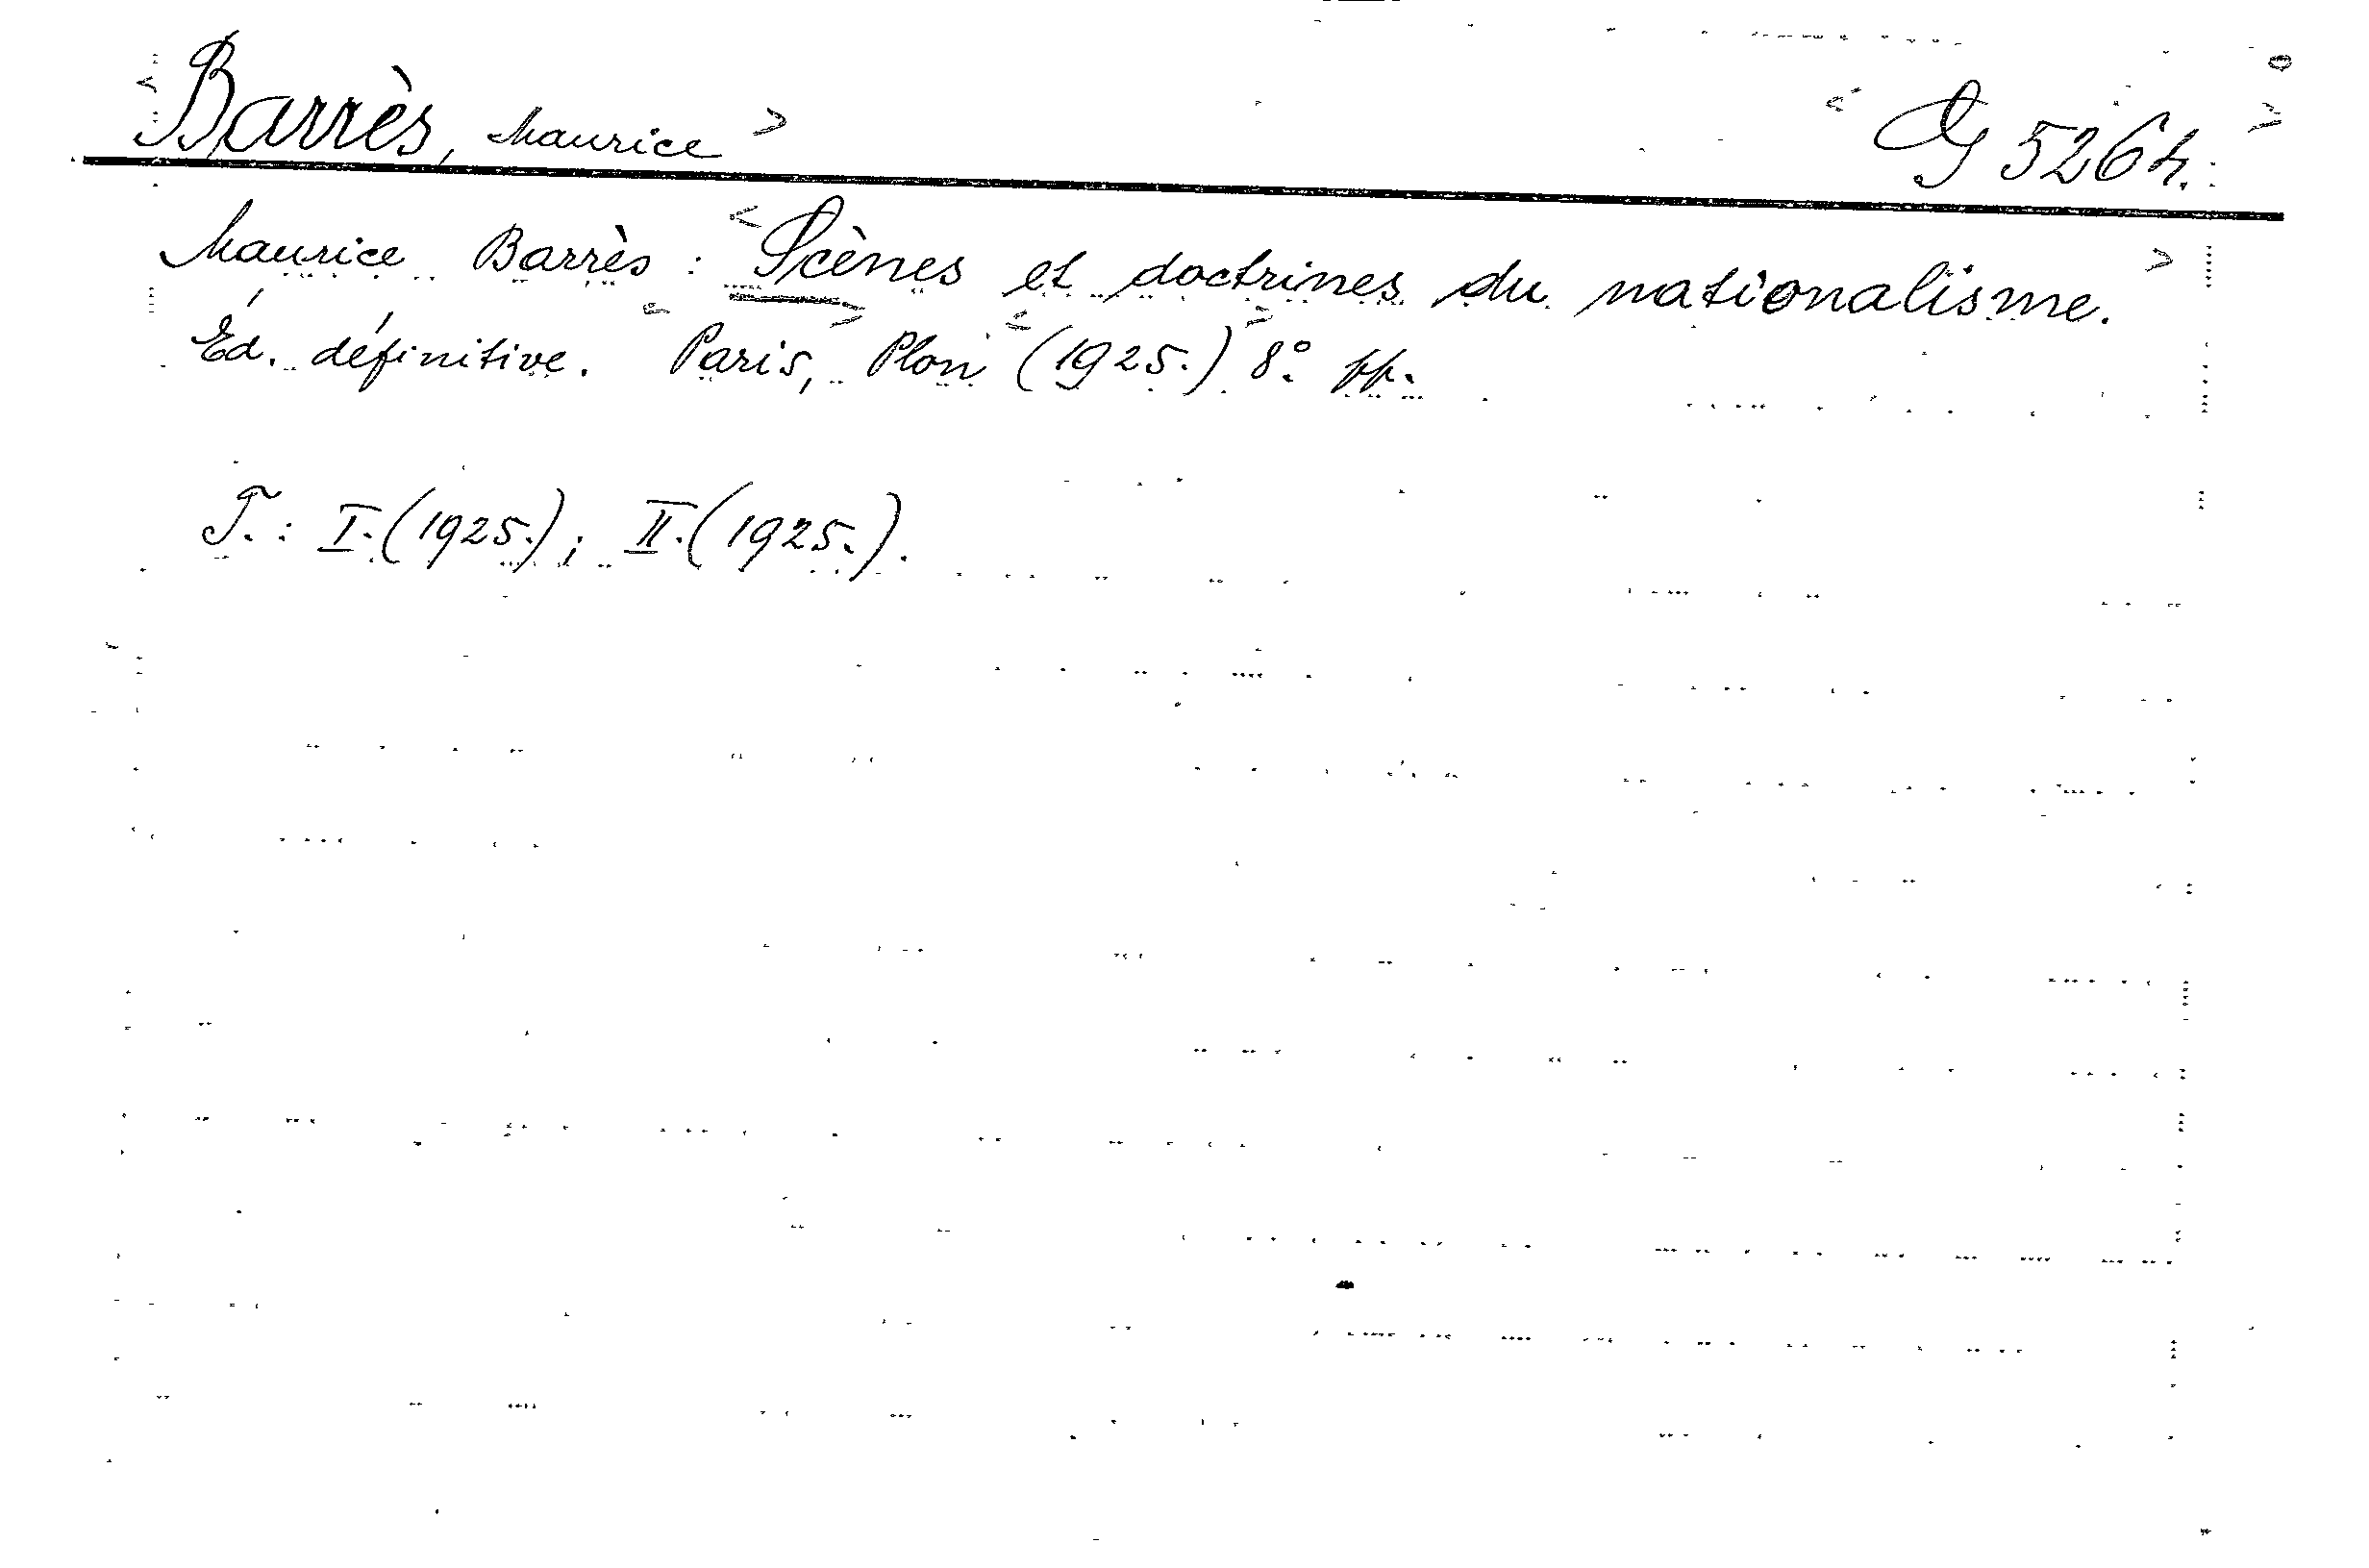 Barrès, Maurice G 5264.
Maurice Barrès: Scènes et doctrines du nationalisme.
Éd. définitive. Paris, Plon (1925.) 8° pp.
T.: I. (1925.); II. (1925.).